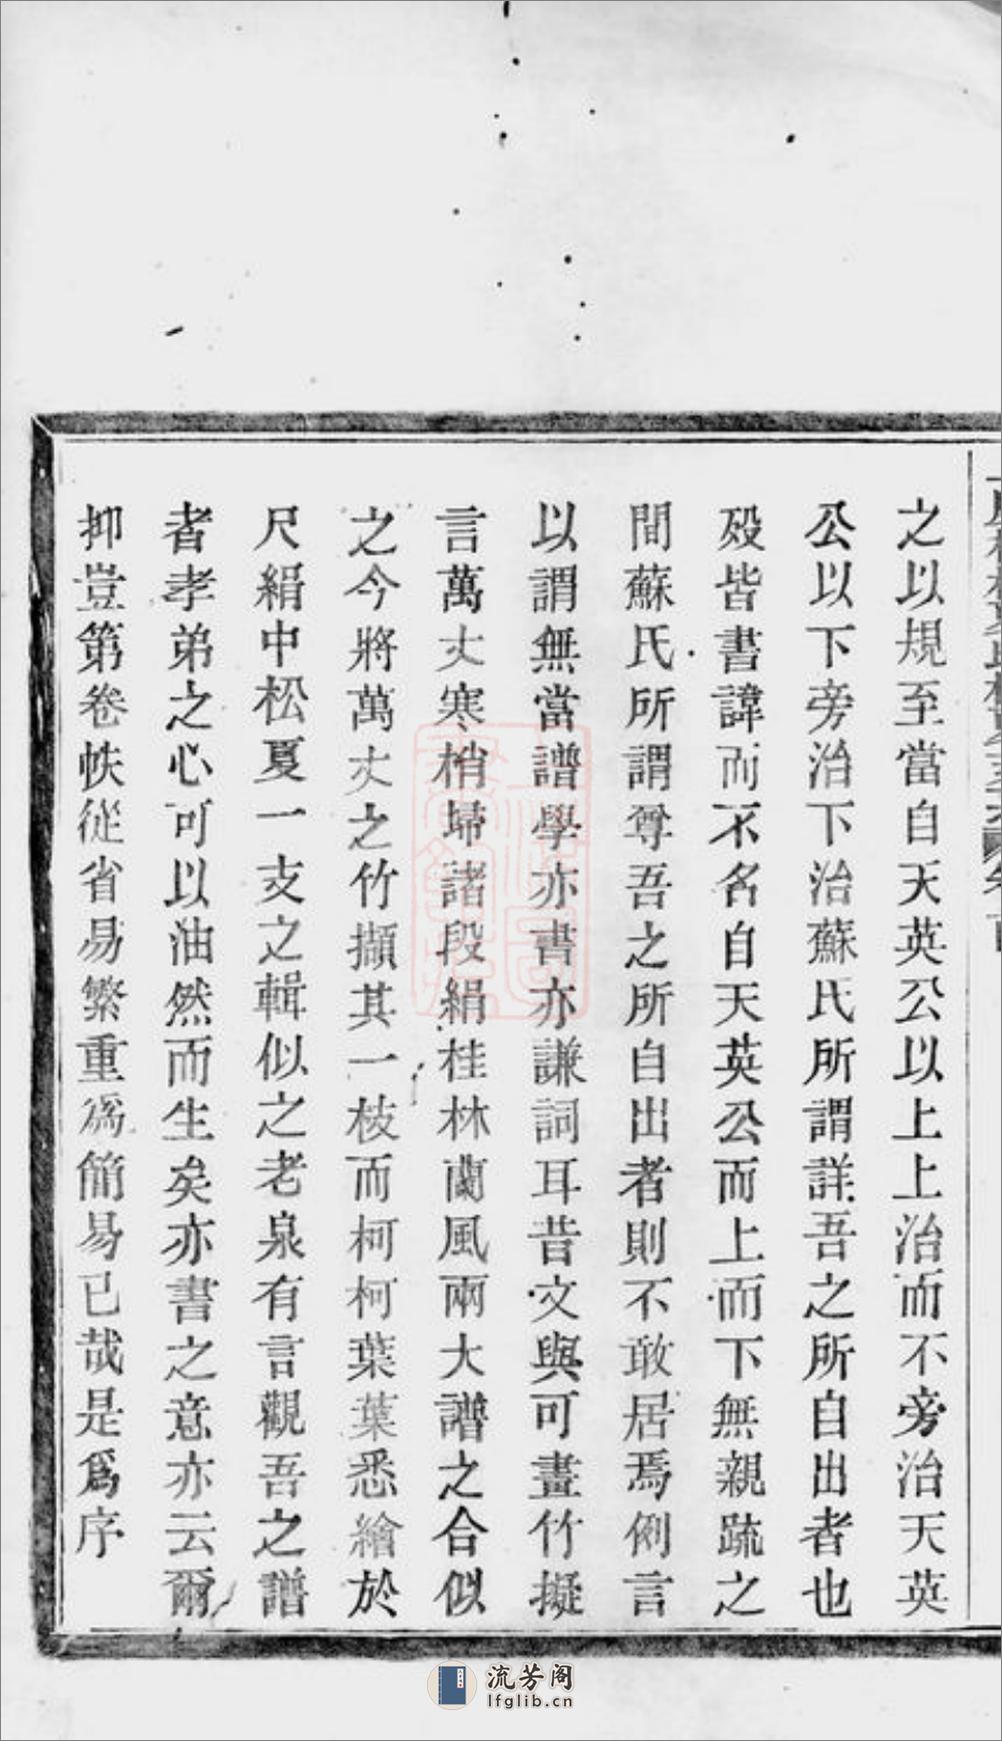 之以規至當自天英公以上上治而不旁治天英
公以下旁治下治蘇氏所謂詳吾之所自出者也
歿皆書諱而不名自天英公而上而下無親疏之
間蘇氏所謂尊吾之所自出者則不敢居焉例言
以謂無當譜學亦書亦謙詞耳昔文與可畫竹擬
言萬丈寒梢埽諸段絹桂林蘭風兩大譜之合似
之今將萬丈之竹擷其一枝而柯柯葉葉悉繪於
尺絹中松夏一支之輯似之老泉有言觀吾之譜
者孝弟之心可以油然而生矣亦書之意亦云爾
抑豈第卷帙從省易繁重爲簡易已哉是爲序
流芳阁
lfglib.cn